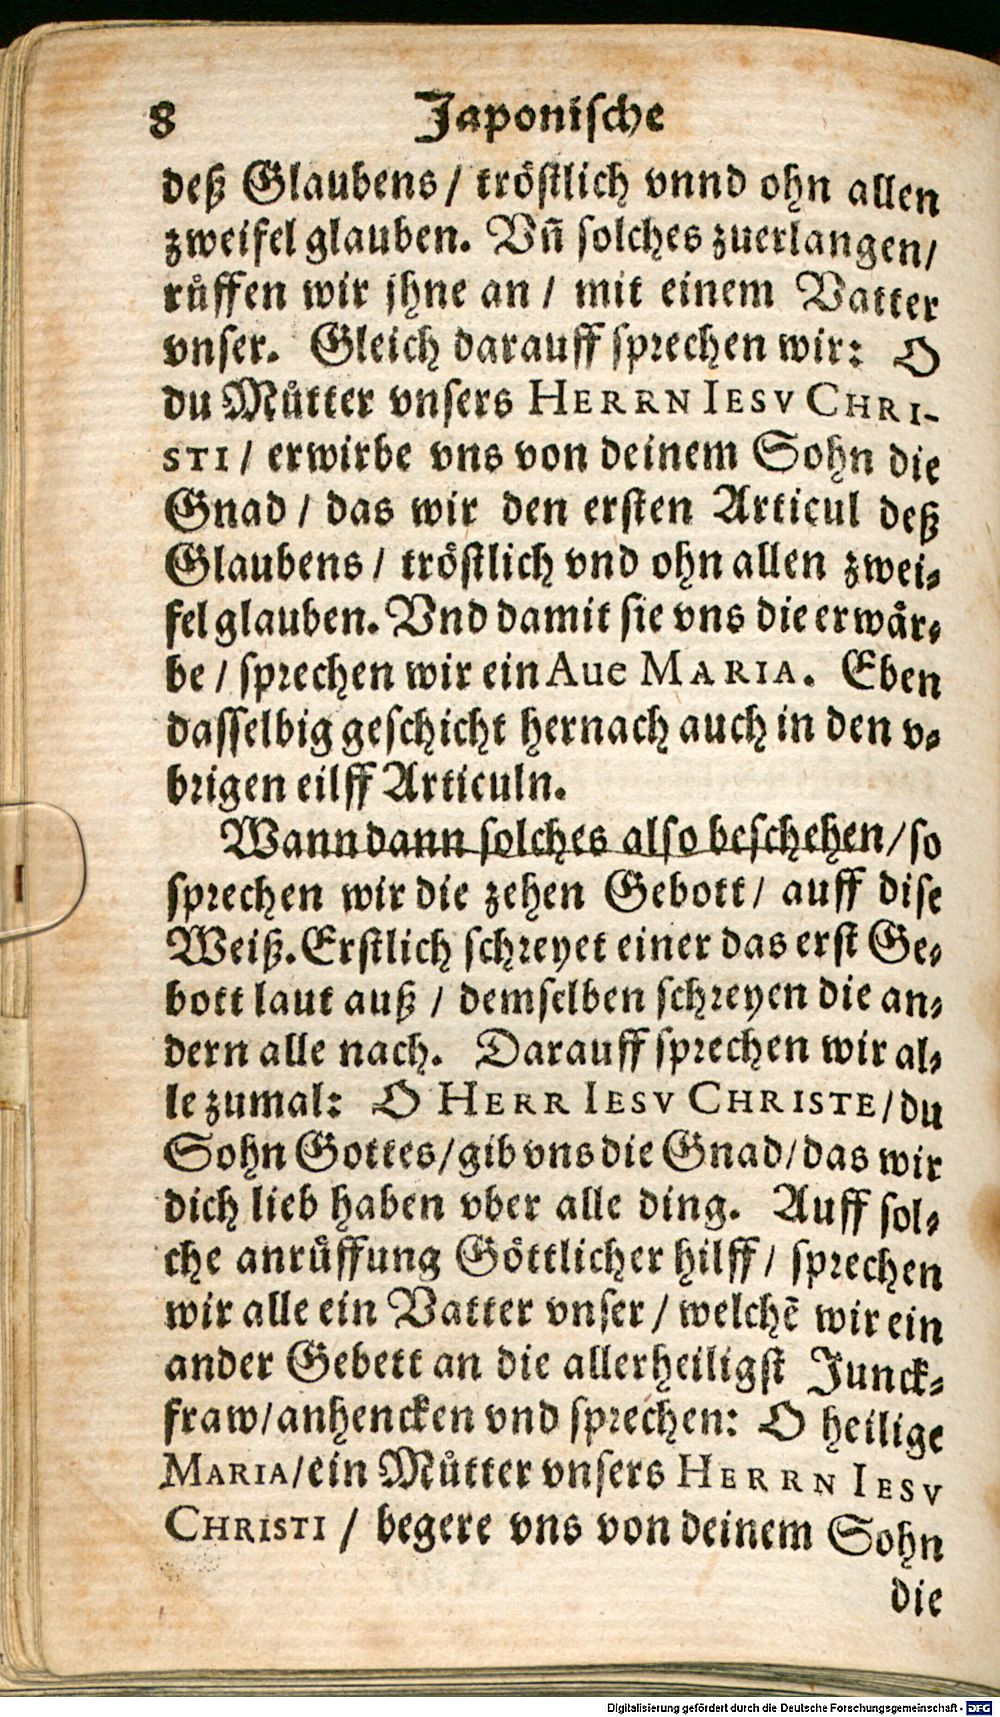 8 Japonische
deß Glaubens / tröstlich vnnd ohn allen
zweifel glauben. Vn̄ solches zuerlangen/
rüffen wir jhne an / mit einem Vatter
vnser. Gleich darauff sprechen wir: O
du Můtter vnsers HERRN IESV CHRI-
STI / erwirbe vns von deinem Sohn die
Gnad / das wir den ersten Articul deß
Glaubens / tröstlich vnd ohn allen zwei-
fel glauben. Vnd damit sie vns die erwår-
be / sprechen wir ein Aue MARIA. Eben
dasselbig geschicht hernach auch in den v-
brigen eilff Articuln.
Wann dann solches also beschehen/so
sprechen wir die zehen Gebott/ auff dise
Weiß. Erstlich schreyet einer das erst Ge-
bott laut auß / demselben schreyen die an-
dern alle nach. Darauff sprechen wir al-
le zumal: O HERR IESV CHRISTE/du
Sohn Gottes/gib vns die Gnad/das wir
dich lieb haben vber alle ding. Auff sol-
che anrüffung Göttlicher hilff/ sprechen
wir alle ein Vatter vnser/ welchē wir ein
ander Gebett an die allerheiligst Junck-
fraw/anhencken vnd sprechen: O heilige
MARIA/ein Můtter vnsers HERRN IESV
CHRISTI / begere vns von deinem Sohn
die
Digitalisierung gefördert durch die Deutsche Forschungsgemeinschaft - DFG